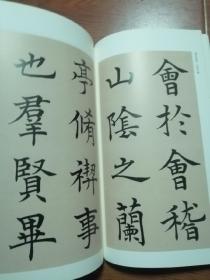 會於會稽
山陰之蘭
亭脩禊事
也羣賢畢